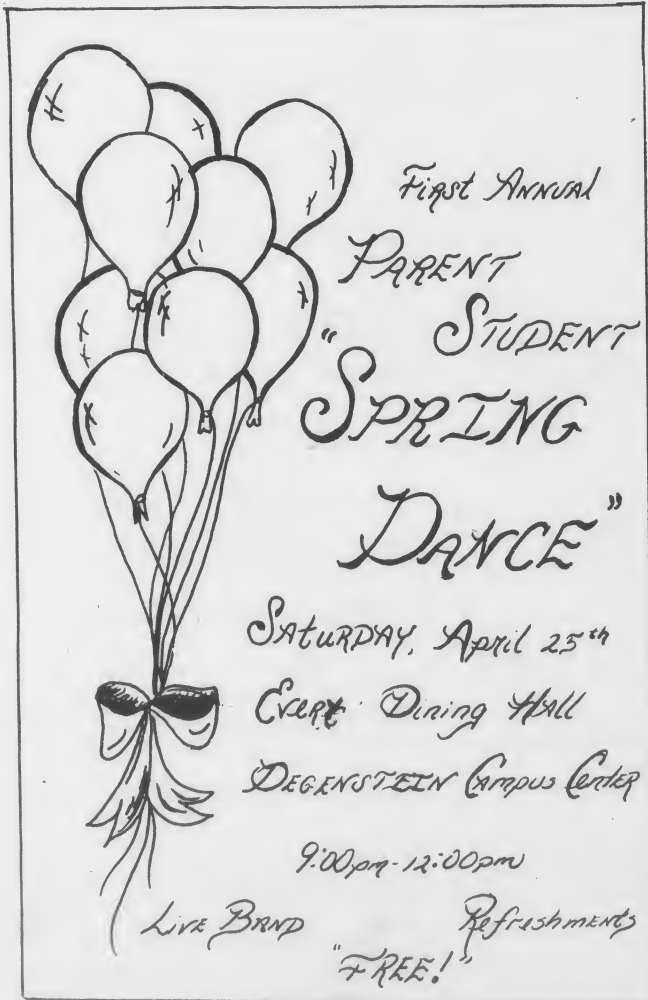 First Annual
Parent
Student
"Spring
Dance"
Saturday, April 25th
Evert Dining Hall
Degenstein Campus Center
9:00pm-12:00pm
Live Band Refreshments
"FREE!"